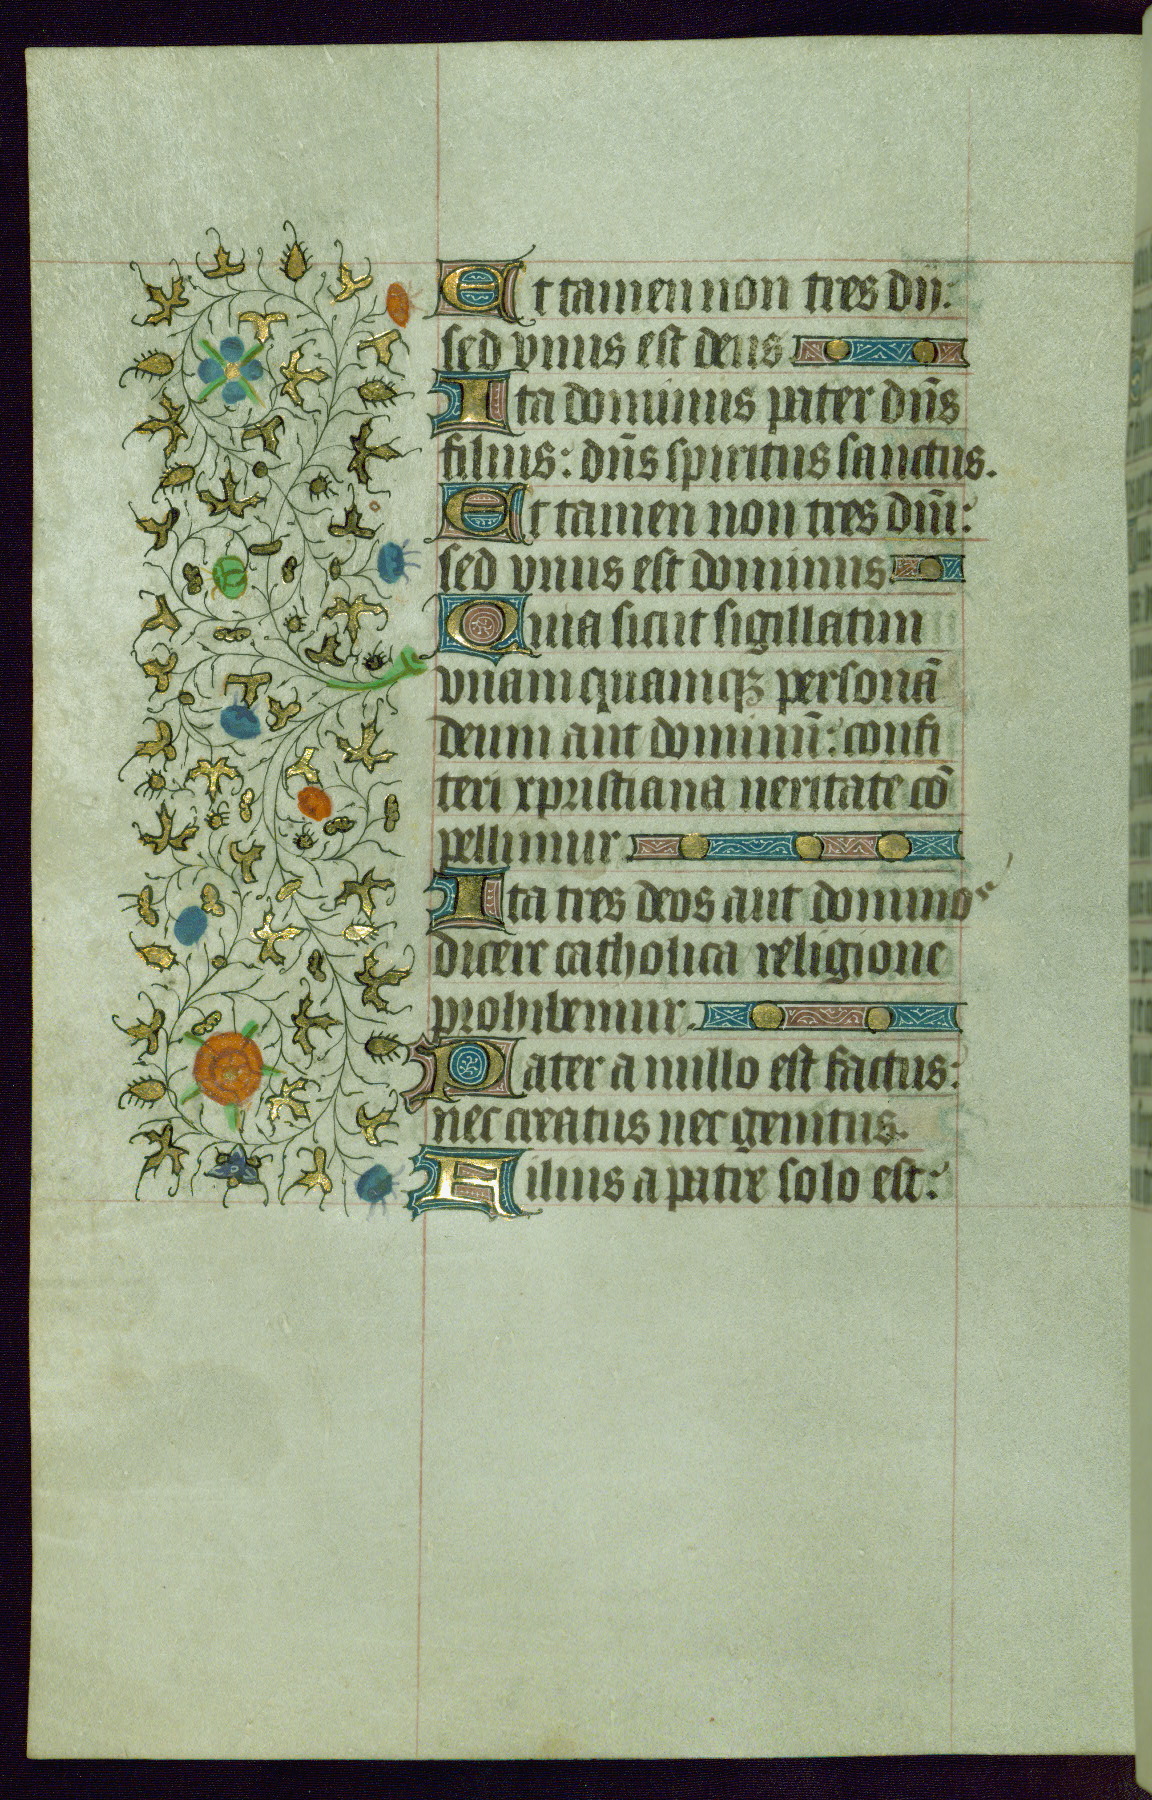 Et tamen non tres dii:
sed vnus est deus
Ita dominus pater dn̄s
filius: dn̄s spiritus sanctus.
Et tamen non tres dn̄i:
sed vnus est dominus.
Quia sicut sigillatim
vnamquamqꝫ personā
deum aut dominū: confi
teri xpristiana ueritate cō
pellimur.
Ita tres deos aut dominos
dicere catholica religione
prohibemur.
Pater a nullo est factus:
nec creatus nec genitus.
Filius a patre solo est: